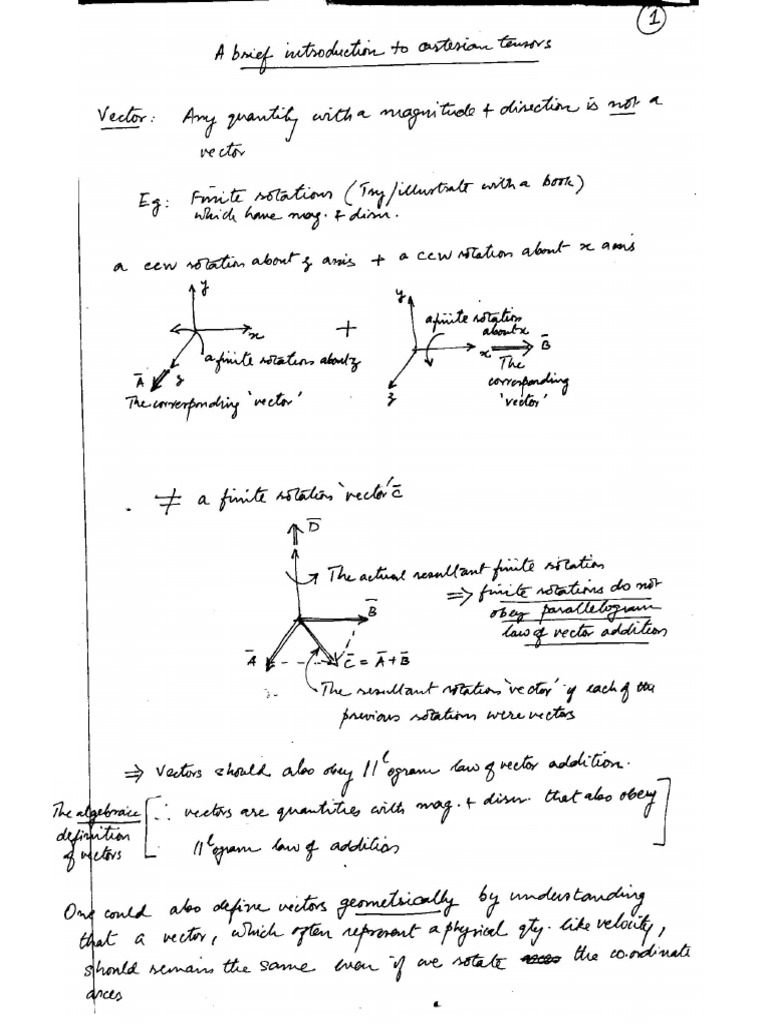 1
A brief introduction to cartesian tensors
Vector: Any quantity with a magnitude + direction is not a
vector
Eg: Finite rotations (Try/illustrate with a book)
which have mag. + dirn.
a ccw rotation about z axis + a ccw rotation about x axis
y
x
z
a finite rotation about z
A
The corresponding 'vector'
+
y
a finite rotation
about x
x
B
z
The
corresponding
'vector'
≠ a finite rotation 'vector' C
D
The actual resultant finite rotation
⇒ finite rotations do not
obey parallelogram
law of vector addition
B
A
C = A + B
The resultant rotation 'vector' if each of the
previous rotations were vectors
⇒ Vectors should also obey ||logram law of vector addition.
The algebraic
definition
of vectors
∴ vectors are quantities with mag. + dirn. that also obey
||logram law of addition
One could also define vectors geometrically by understanding
that a vector, which often represent a physical qty. like velocity,
should remains the same even if we rotate the co.ordinate
axes